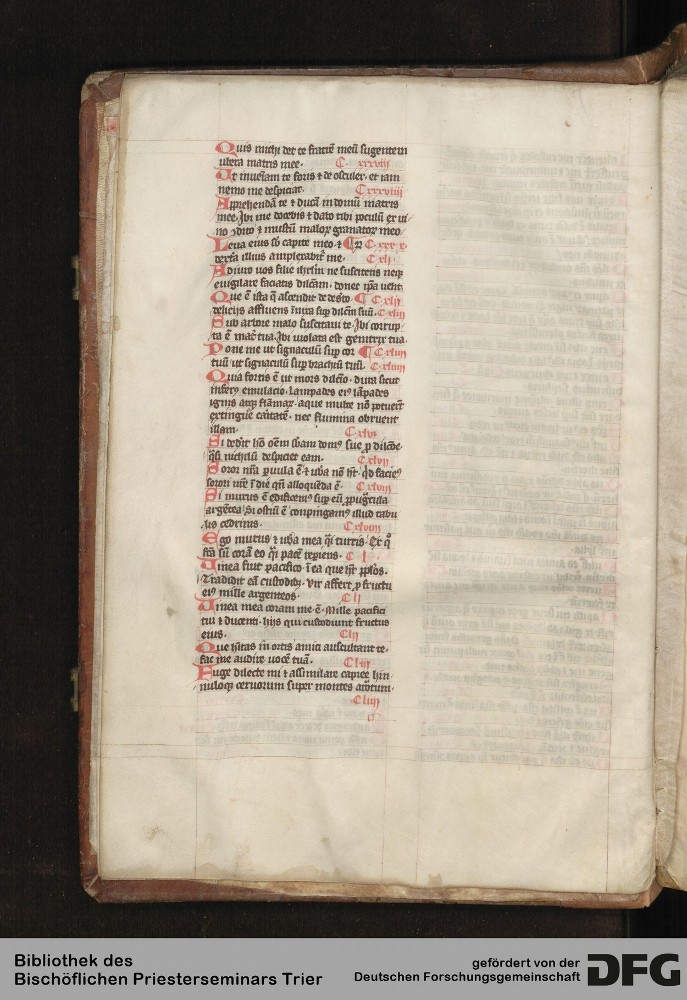 Quis michi det te fratrē meū sugentem
ubera matris mee · C · xxxviij
Ut inueniam te foris ⁊ de osculer · et iam
nemo me despiciat · C xxxviiij
Apprehendā te ⁊ ducā in domū matris
mee · Ibi me docebis ⁊ dabo tibi poculū ex ui
no ↄdito ⁊ mustū malorꝝ granatorꝝ meo
Leua eius sb capite meo · ⁊ C · xxx x ·
dextra illius amplexabit me · C xli ·
Adiuro uos filie ihrlm ne suscitetis neqꝫ
euigilare faciatis dilcām · donec ipa uelit
Que ē ista q̄ ascendit de desto · C xlij
delicijs affluens īnixa suꝑ dilcm suū · C xliij
Sub arbore malo suscitaui te · Ibi corrup
ta ē mat tua · Ibi uiolata est genitrix tua ·
Pone me ut signaculū suꝑ cor C xliiij
tuū ut signaculū suꝑ brachiū tuū · C xliiij
Quia fortis ē ut mors dilcio · dura sicut
inferꝰ emulacio · Lampades eiꝰ lāpades
ignis atqꝫ flāmarꝝ · aque multe nō potuerūt
extinguē caritatē · nec flumina obruent
illam · C · xlvi ·
Si dedit hō oēm sbam domꝰ sue ꝓ dilcōe ·
q̄si nichilū despiciet eam · C xlvij
Soror nr̄a paruula ē · ⁊ ubera nō ht · qd faciemꝰ
sorori nr̄e ī die qn̄ alloquēda ē · C xlviij
Si murus ē edificemꝰ suꝑ eū ꝓpugnacula
argētea · Si ostiū ē conpingamꝰ illud tabu
lis cedrinis · C xlviiij
Ego murus ⁊ ubera mea q̄si turris · Ex q̊
fca sū corā eo q̄si pacē reperiens · C l ·
Uinea fuit pacifico · ī ea que ht pplos ·
Tradidit eā custodibꝫ · vir affert ꝓ fructu
eiꝰ mille argenteos · C li
Uinea mea coram me ē · Mille pacifici
tui ⁊ ducenti · hijs qui custodiunt fructus
eius · C lij
Que hītas in ortis amici auscultant te ·
fac me audire uocē tuā · C liij
Fuge dilecte mi ⁊ assimilare capree hin
nuloqꝫ ceruorum super montes arōtum ·
C liiij
Bibliothek des
Bischöflichen Priesterseminars Trier
gefördert von der
Deutschen Forschungsgemeinschaft
DFG